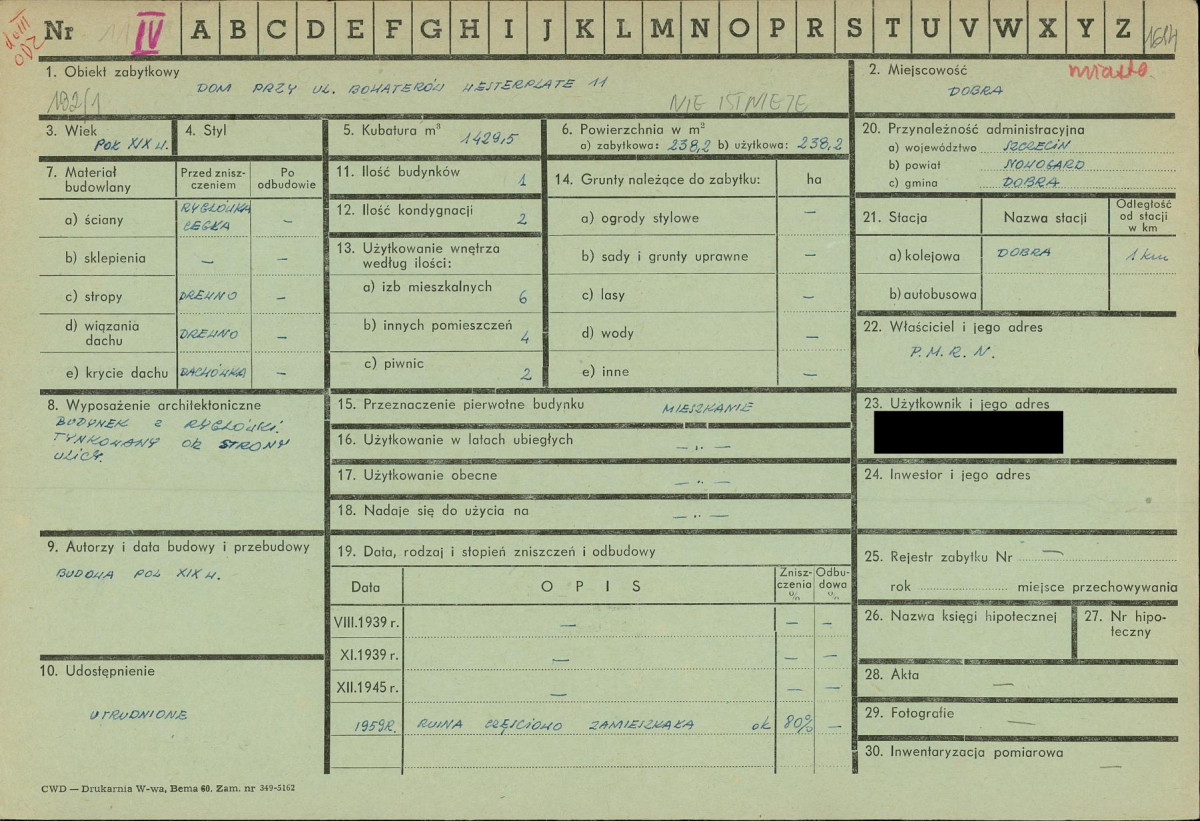 do III
ODZ
Nr IV A B C D E F G H I J K L M N O P R S T U V W X Y Z
1. Obiekt zabytkowy
DOM PRZY UL. BOHATERÓW WESTERPLATE 11
192/1
NIE ISTNIEJE
2. Miejscowość miasto
DOBRA
3. Wiek
POŁ XIX W.
4. Styl
5. Kubatura m³ 1429,5
6. Powierzchnia w m²
a) zabytkowa: 238,2 b) użytkowa: 238,2
7. Materiał budowlany
Przed zniszczeniem
Po odbudowie
a) ściany RYGLÓWKA CEGŁA –
b) sklepienia – –
c) stropy DREWNO –
d) wiązania dachu DREWNO –
e) krycie dachu DACHÓWKA –
8. Wyposażenie architektoniczne
BUDYNEK Z RYGLÓWKI.
TYNKOWANY OD STRONY
ULICY.
9. Autorzy i data budowy i przebudowy
BUDOWA POŁ XIX W.
10. Udostępnienie
UTRUDNIONE
11. Ilość budynków 1
12. Ilość kondygnacji 2
13. Użytkowanie wnętrza
według ilości:
a) izb mieszkalnych 6
b) innych pomieszczeń 4
c) piwnic 2
14. Grunty należące do zabytku: ha
a) ogrody stylowe –
b) sady i grunty uprawne –
c) lasy –
d) wody –
e) inne –
15. Przeznaczenie pierwotne budynku MIESZKANIE
16. Użytkowanie w latach ubiegłych – „ –
17. Użytkowanie obecne – „ –
18. Nadaje się do użycia na – „ –
19. Data, rodzaj i stopień zniszczeń i odbudowy
Data OPIS Zniszczenia % Odbudowa %
VIII.1939 r. – – –
XI.1939 r. – – –
XII.1945 r. – – –
1959R. RUINA CZĘŚCIOWO ZAMIESZKAŁA ok 80% –
20. Przynależność administracyjna
a) województwo SZCZECIN
b) powiat NOWOGARD
c) gmina DOBRA
21. Stacja Nazwa stacji Odległość od stacji w km
a) kolejowa DOBRA 1 km
b) autobusowa
22. Właściciel i jego adres
P.M.R.N.
23. Użytkownik i jego adres
24. Inwestor i jego adres
25. Rejestr zabytku Nr –
rok miejsce przechowywania
26. Nazwa księgi hipotecznej
27. Nr hipoteczny
28. Akta –
29. Fotografie –
30. Inwentaryzacja pomiarowa –
CWD — Drukarnia W-wa, Bema 60. Zam. nr 349-5162